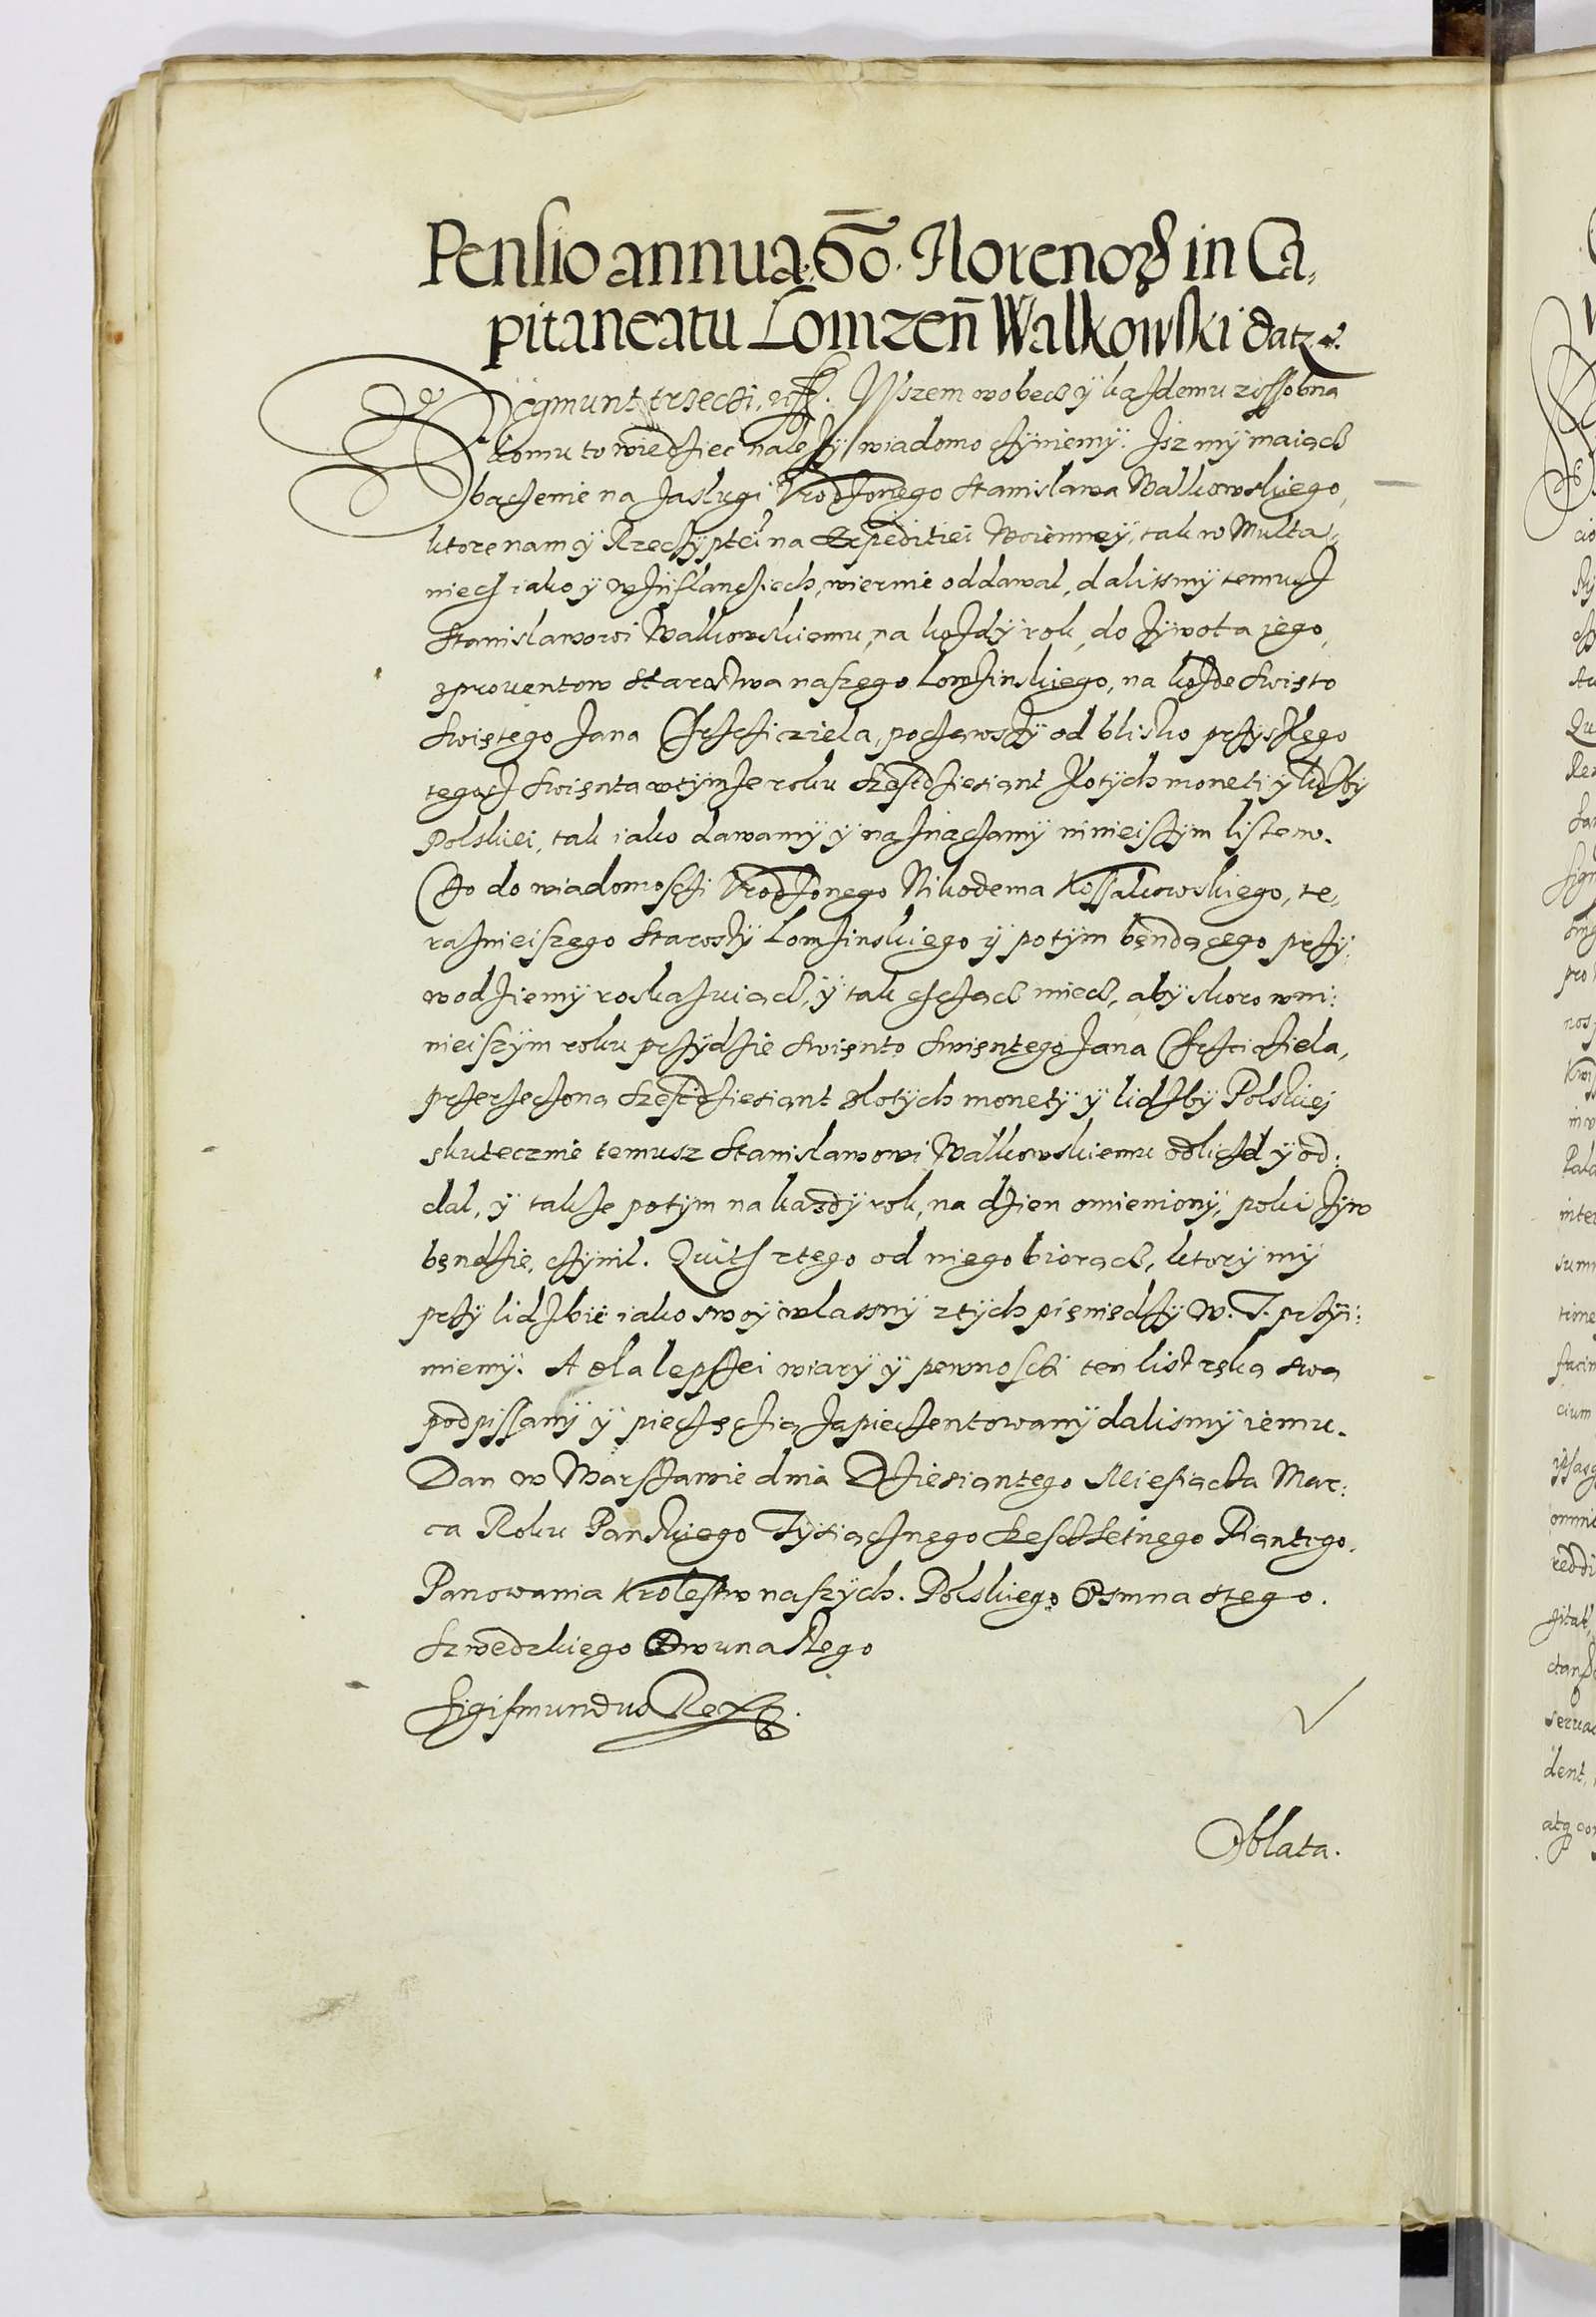 Pensio annua. 60. Florenorum in Ca,
pitaneatu Lomzen Walkowski datr.
Zÿgmunt trzecżi, Wszem wobecz ÿ każdemu zossobna
komu to wiedżiec należÿ wiadomo cżÿniemÿ. Jsz mÿ maiącz
bacżenie na zaslugi Vrodżonego Stanislawa Walkowskiego,
ktore nam ÿ Rzecżÿptei na Expeditiei Woiennęÿ, tak w Multa,
niech iako ÿ w Jnflancżiech, wiernie oddawal, dalismÿ temusz
Stanislawowi Walkowskiemu, na każdÿ rok, do żÿwota iego,
z prouentow Starostwa naszego Lomżinskiego, na każde Swięto
Swiętego Jana Chrzcżicziela, pocżąwszÿ od blisko przÿszlego
tegosz Swięnta w tÿmże roku Szescdżiesiant zlotÿch moneti ÿ lidżbÿ
Polskiei, tak iako dawamÿ ÿ naznacżamÿ ninieiszÿm listem.
Czo do wiadomoscżi Vrodżonego Nikodema Kossakowskiego, te,
raznieiszego Starostÿ Lomżinskiego ÿ potÿm bęndącego przÿ,
wodżiemÿ roskazuiącz, ÿ tak chcżącz miecz, abÿ skoro w ni:
nieiszÿm roku przÿdżie Swięnto Swięntego Jana Chrzcicżiela,
przerzecżoną Szescdżiesiant zlotÿch monetÿ ÿ lidżbÿ Polskiej
skutecznie temusz Stanislawowi Walkowskiemu odlicżel ÿ od:
dal, ÿ także potÿm na każdÿ rok, na dżien omienionÿ, poki żÿw
bęndżie, cżÿnil. Quith z tego od niego biorącz, ktorÿ mÿ
przÿ lidżbie iako swoÿ wlassnÿ z tÿch pięniędżÿ W. T. przÿi:
miemÿ. A dla lepszei wiarÿ ÿ pewnoscżi ten list ręką swą
podpissanÿ ÿ piecżęcżią zapiecżentowanÿ dalismÿ iemu.
Dan w Warszawie dnia Dżiesiantego Miesiącza Mar:
ca Roku Panskiego Tÿsiącżnego Szescżsetnego Piantego.
Panowania Krolestw naszÿch. Polskiego Osmnastego.
Szwedzkiego Dwunastego
Sigismundus Rex.
Oblata.